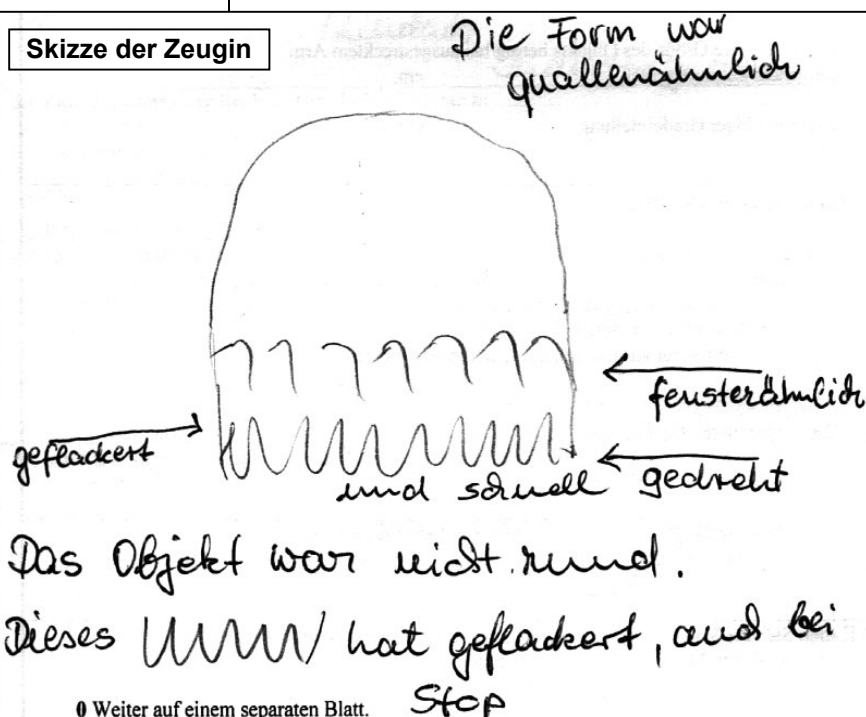 Skizze der Zeugin
Die Form war
quallenähnlich
fensterähnlich
geflackert
und schnell gedreht
Das Objekt war nicht rund.
Dieses hat geflackert, auch bei
Stop
0 Weiter auf einem separaten Blatt.